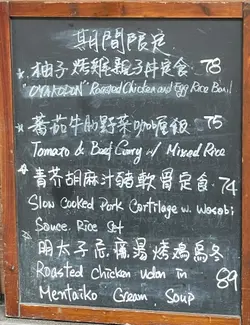 期間限定
* 柚子烤雞親子丼定食 78
"OYAKODON" Roasted Chicken and Egg Rice Bowl
* 蕃茄牛肋野菜咖喱飯 75
Tomato & Beef Curry w/ Mixed Rice
* 青芥胡麻汁豬軟骨定食 74
Slow Cooked Pork Cartilage w. Wasabi
Sauce Rice Set
明太子忌廉湯烤鳮烏冬
Roasted Chicken Udon in 89
Mentaiko Cream Soup